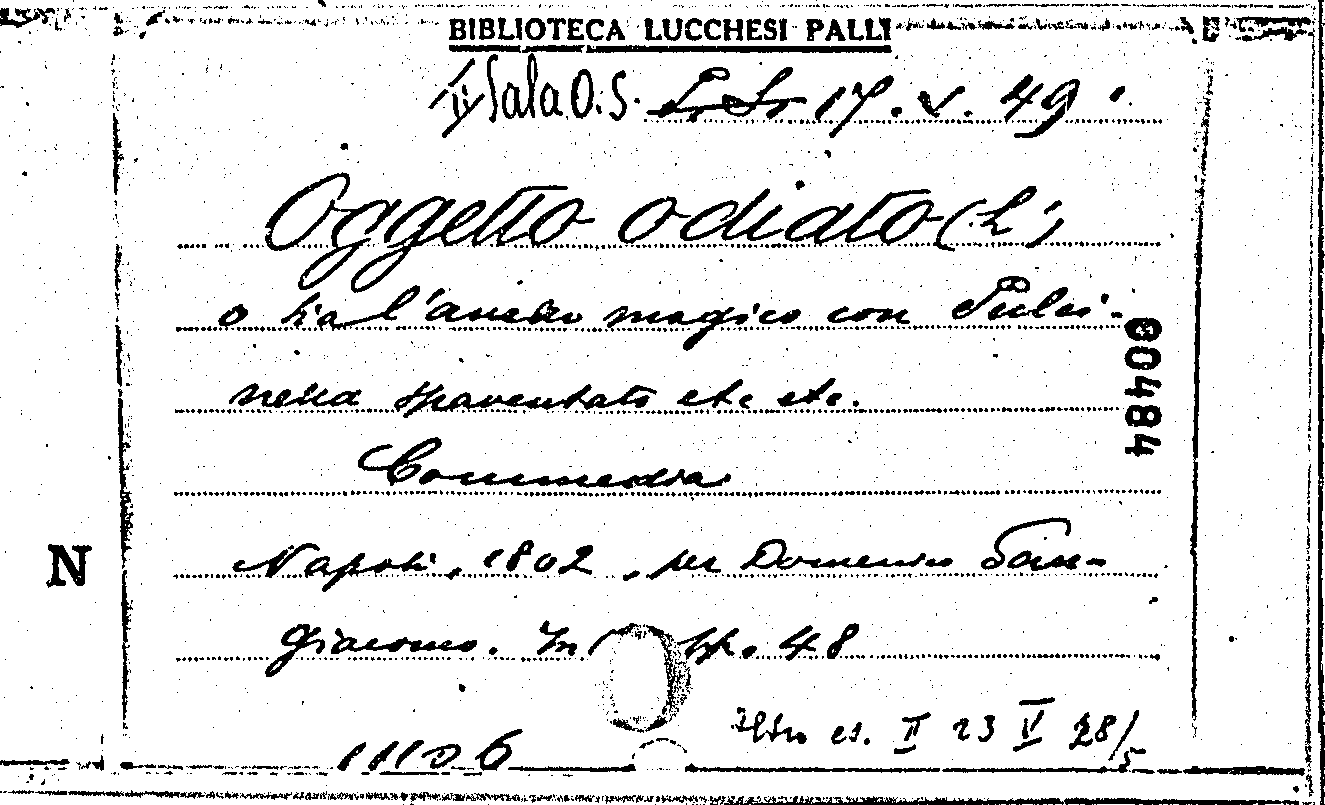 BIBLIOTECA LUCCHESI PALLI
Sala O.S. 17. V. 49
Oggetto odiato (L')
o sia l'anello magico con Pulci-
nella spaventato etc etc.
Commedia
Napoli, 1802, per Domenico San-
giacomo. In pp. 48
Altro es. II 23 V 28/5
11106
N
00484